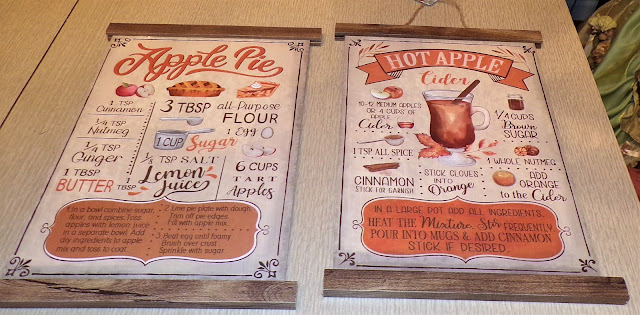 Apple Pie
1 TSP
Cinnamon
1/4 TSP
Nutmeg
1/4 TSP
Ginger
1 TBSP
BUTTER
3 TBSP all-Purpose
FLOUR
1 CUP Sugar
1 Egg
1/8 TSP SALT
1 TBSP Lemon
Juice
6 CUPS
TART
Apples
1. In a bowl combine sugar,
flour, and spices. Toss
apples with lemon juice
in a separate bowl. Add
dry ingredients to apple
mix and toss to coat.
2. Line pie plate with dough.
Trim off pie edges.
Fill with apple mix.
3. Beat egg until foamy
Brush over crust
Sprinkle with sugar
HOT APPLE
Cider
10-12 MEDIUM APPLES
OR 4 CUPS OF
APPLE
Cider
1 TSP ALL SPICE
CINNAMON
STICK FOR GARNISH
STICK CLOVES
INTO
Orange
1/4 CUPS
Brown
SUGAR
1 WHOLE NUTMEG
ADD
ORANGE
to the Cider
IN A LARGE POT ADD ALL INGREDIENTS.
HEAT THE Mixture, Stir FREQUENTLY
POUR INTO MUGS & ADD CINNAMON
STICK IF DESIRED.